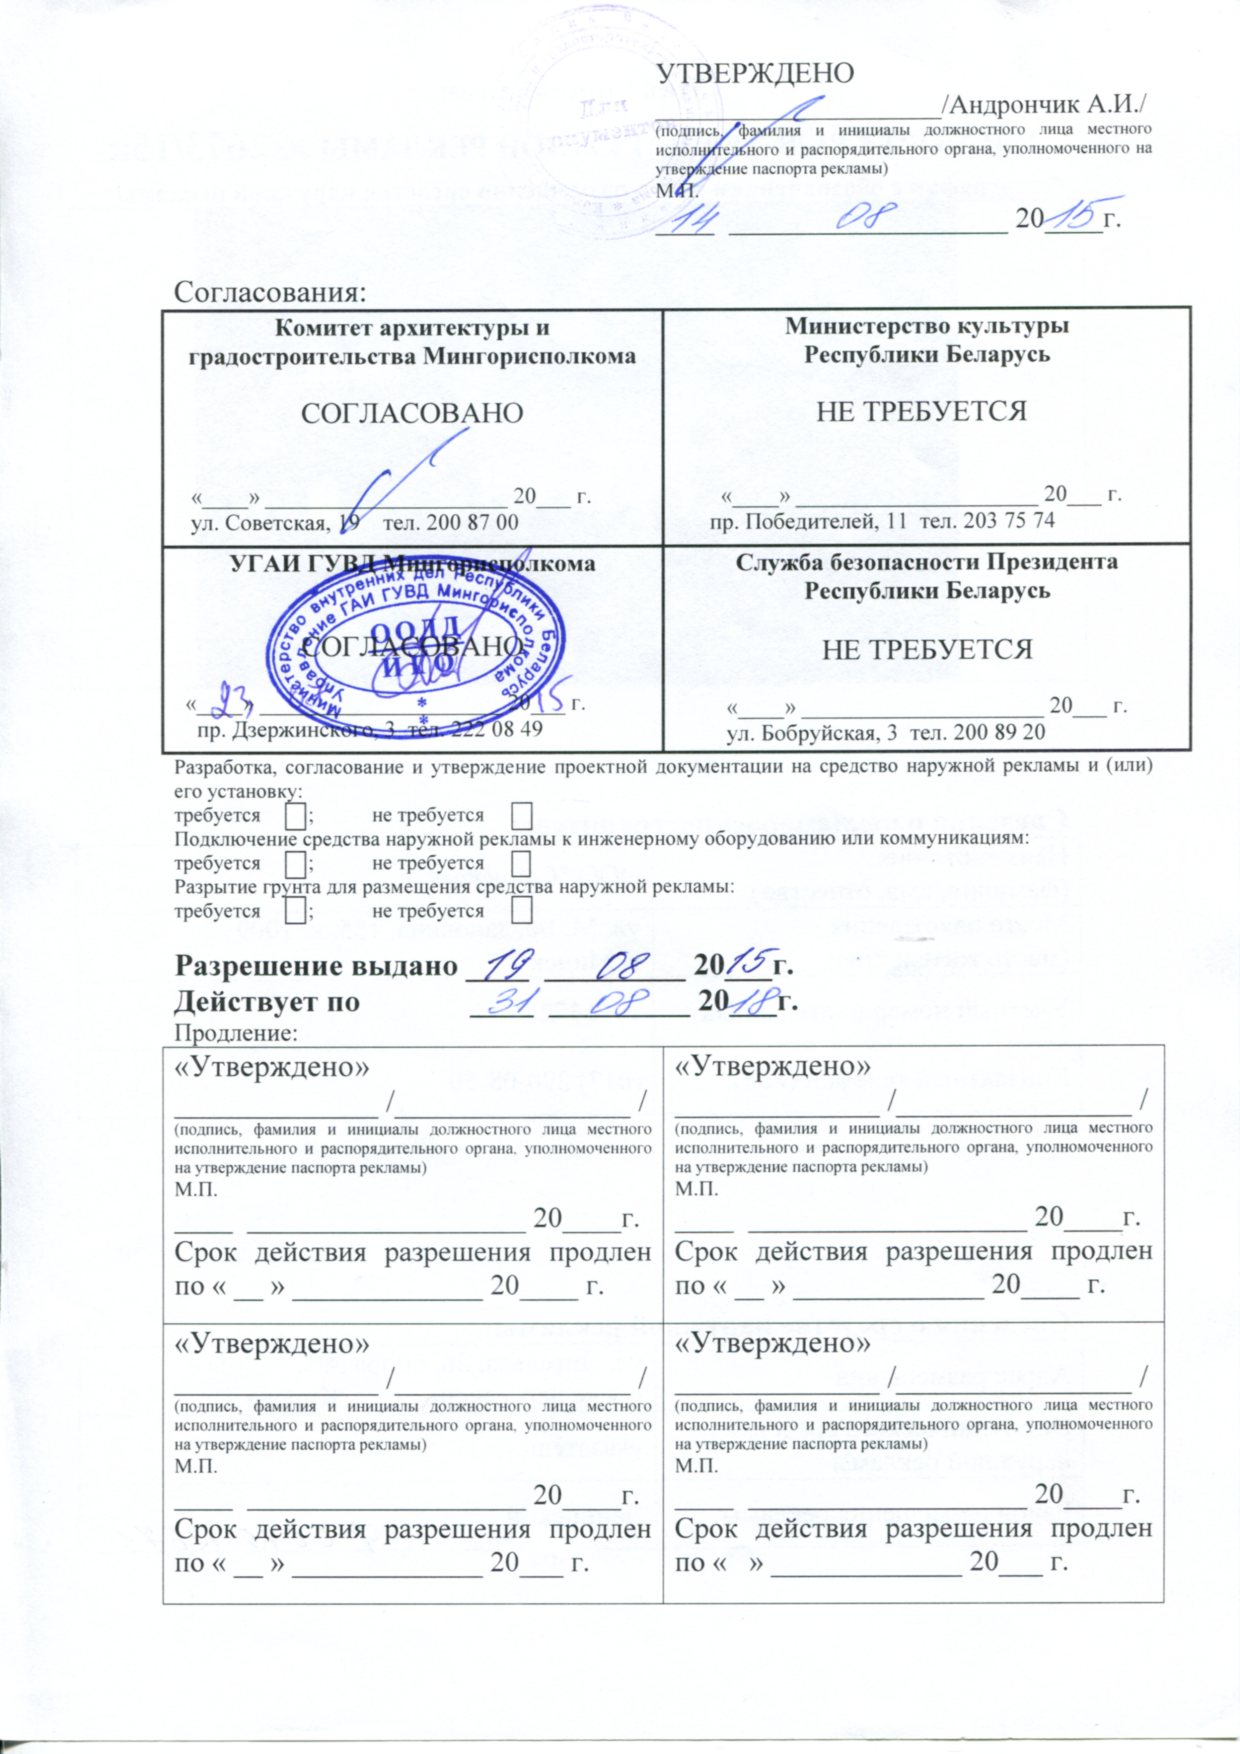 УТВЕРЖДЕНО
____________________/Андрончик А.И./
(подпись, фамилия и инициалы должностного лица местного
исполнительного и распорядительного органа, уполномоченного на
утверждение паспорта рекламы)
М.П.
14 08 2015г.
Согласования:
Комитет архитектуры и
градостроительства Мингорисполкома
СОГЛАСОВАНО
«____» ____________________ 20___ г.
ул. Советская, 19 тел. 200 87 00
Министерство культуры
Республики Беларусь
НЕ ТРЕБУЕТСЯ
«____» ____________________ 20___ г.
пр. Победителей, 11 тел. 203 75 74
УГАИ ГУВД Мингорисполкома
СОГЛАСОВАНО
Министерство внутренних дел Республики Беларусь
Управление ГАИ ГУВД Мингорисполкома
ООДД
И ГО
«23» 2015 г.
пр. Дзержинского, 3 тел. 222 08 49
Служба безопасности Президента
Республики Беларусь
НЕ ТРЕБУЕТСЯ
«____» ____________________ 20___ г.
ул. Бобруйская, 3 тел. 200 89 20
Разработка, согласование и утверждение проектной документации на средство наружной рекламы и (или)
его установку:
требуется ; не требуется
Подключение средства наружной рекламы к инженерному оборудованию или коммуникациям:
требуется ; не требуется
Разрытие грунта для размещения средства наружной рекламы:
требуется ; не требуется
Разрешение выдано 19 08 2015г.
Действует по 31 08 2018г.
Продление:
«Утверждено»
______________ /________________ /
(подпись, фамилия и инициалы должностного лица местного
исполнительного и распорядительного органа, уполномоченного
на утверждение паспорта рекламы)
М.П.
____ ___________________ 20____г.
Срок действия разрешения продлен
по « __ » _____________ 20____ г.
«Утверждено»
______________ /________________ /
(подпись, фамилия и инициалы должностного лица местного
исполнительного и распорядительного органа, уполномоченного
на утверждение паспорта рекламы)
М.П.
____ ___________________ 20____г.
Срок действия разрешения продлен
по « __ » _____________ 20____ г.
«Утверждено»
______________ /________________ /
(подпись, фамилия и инициалы должностного лица местного
исполнительного и распорядительного органа, уполномоченного
на утверждение паспорта рекламы)
М.П.
____ ___________________ 20____г.
Срок действия разрешения продлен
по « __ » _____________ 20___ г.
«Утверждено»
______________ /________________ /
(подпись, фамилия и инициалы должностного лица местного
исполнительного и распорядительного органа, уполномоченного
на утверждение паспорта рекламы)
М.П.
____ ___________________ 20____г.
Срок действия разрешения продлен
по « » _____________ 20___ г.